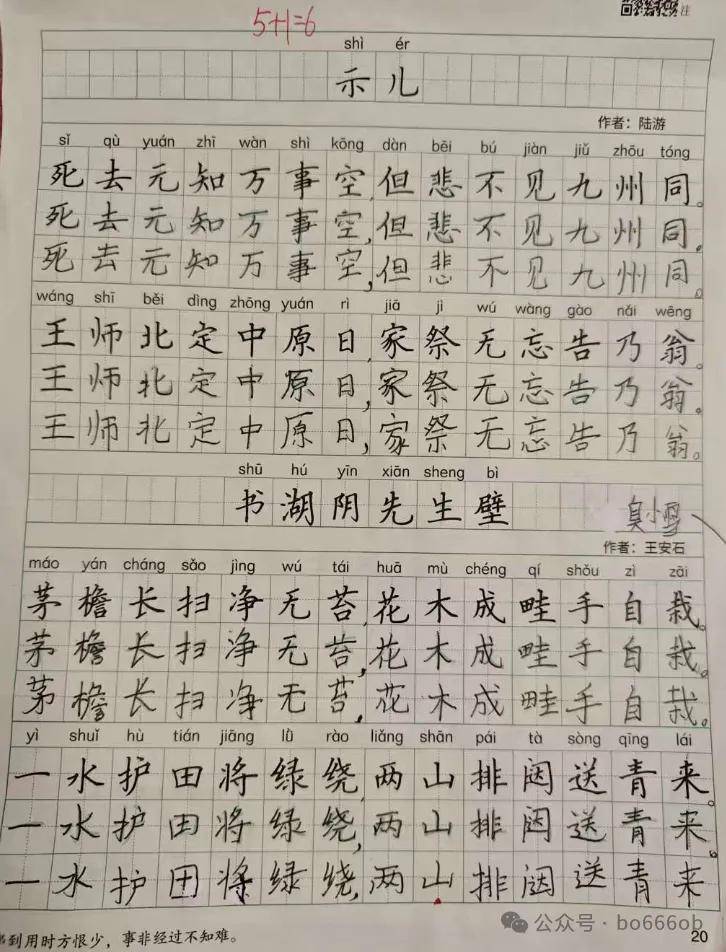 注
5+1=6
shì ér
示儿
作者：陆游
sǐ qù yuán zhī wàn shì kōng dàn bēi bú jiàn jiǔ zhōu tóng
死去元知万事空,但悲不见九州同。
死去元知万事空,但悲不见九州同。
死去元知万事空,但悲不见九州同。
wáng shī běi dìng zhōng yuán rì jiā jì wú wàng gào nǎi wēng
王师北定中原日,家祭无忘告乃翁。
王师北定中原日,家祭无忘告乃翁。
王师北定中原日,家祭无忘告乃翁。
shū hú yīn xiān sheng bì
书湖阴先生壁
作者：王安石
máo yán cháng sǎo jìng wú tái huā mù chéng qí shǒu zì zāi
茅檐长扫净无苔,花木成畦手自栽。
茅檐长扫净无苔,花木成畦手自栽。
茅檐长扫净无苔,花木成畦手自栽。
yì shuǐ hù tián jiāng lǜ rào liǎng shān pái tà sòng qīng lái
一水护田将绿绕,两山排闼送青来。
一水护田将绿绕,两山排闼送青来。
一水护田将绿绕,两山排闼送青来
到用时方恨少，事非经过不知难。
公众号·bo666ob
20